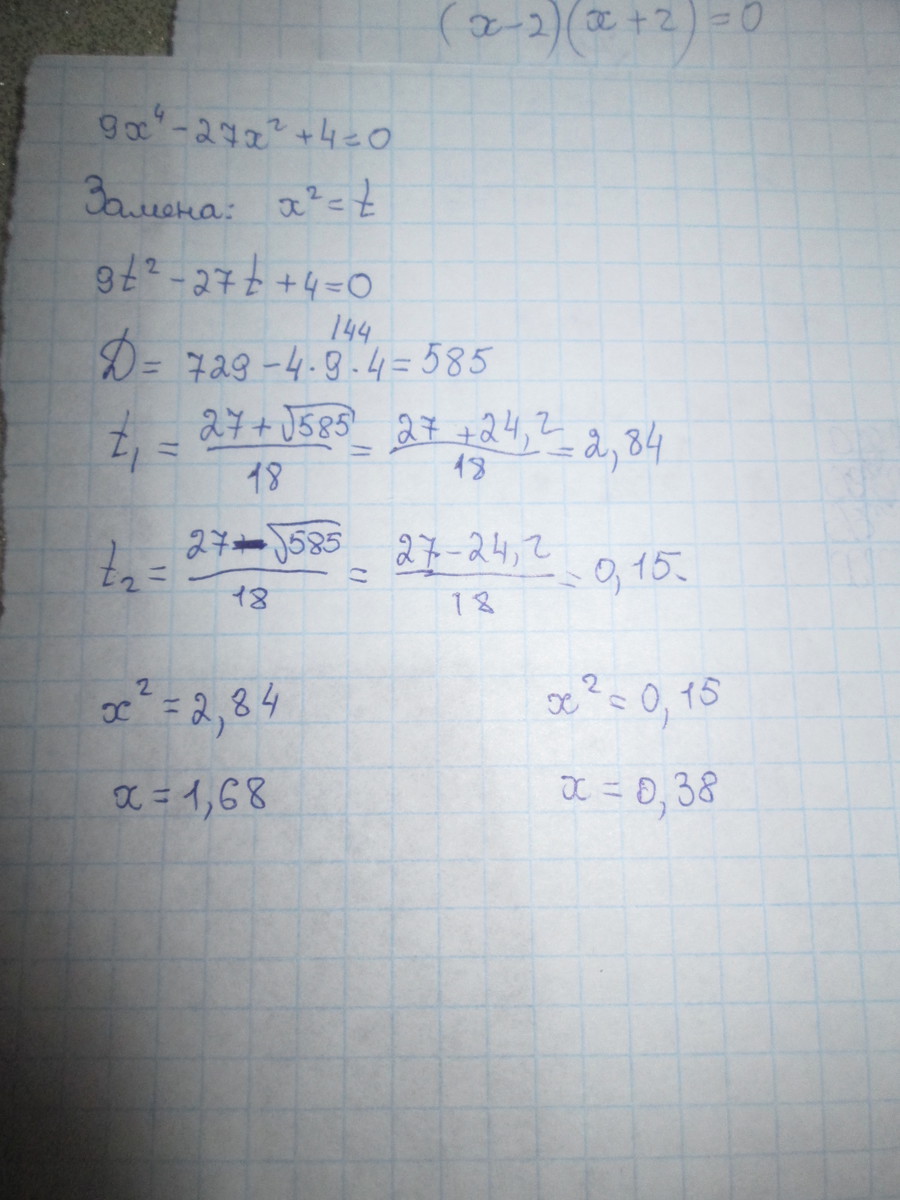 (x-2)(x+2)=0
9x⁴-27x²+4=0
Замена: x²=t
9t²-27t+4=0
144
D= 729-4·9·4=585
t₁ = (27+√585)/18 = (27+24,2)/18 = 2,84
t₂ = (27-√585)/18 = (27-24,2)/18 = 0,15.
x²=2,84 x²=0,15
x=1,68 x=0,38